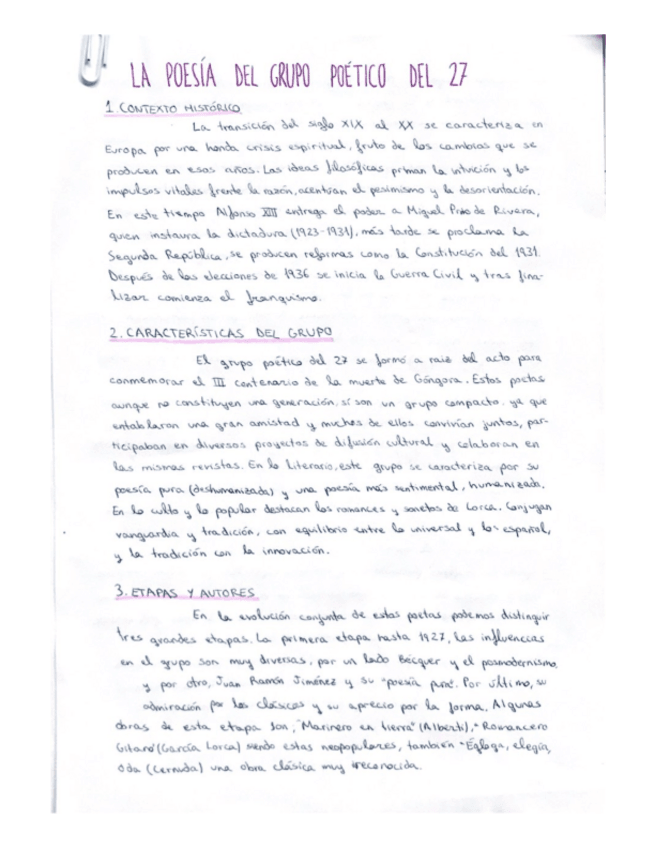 LA POESÍA DEL GRUPO POÉTICO DEL 27
1. CONTEXTO HISTÓRICO
La transición del siglo XIX al XX se caracteriza en
Europa por una honda crisis espiritual, fruto de los cambios que se
producen en esos años. Las ideas filosóficas priman la intuición y los
impulsos vitales frente la razón, acentúan el pesimismo y la desorientación.
En este tiempo Alfonso XIII entrega el poder a Miguel Primo de Rivera,
quien instaura la dictadura (1923-1931), más tarde se proclama la
Segunda República, se producen reformas como la Constitución del 1931.
Después de las elecciones de 1936 se inicia la Guerra Civil y tras fina-
lizar comienza el franquismo.
2. CARACTERÍSTICAS DEL GRUPO
El grupo poético del 27 se formó a raíz del acto para
conmemorar el III centenario de la muerte de Góngora. Estos poetas
aunque no constituyen una generación, sí son un grupo compacto. ya que
entablaron una gran amistad y muchos de ellos convivían juntos, par-
ticipaban en diversos proyectos de difusión cultural y colaboran en
las mismas revistas. En lo literario, este grupo se caracteriza por su
poesía pura (deshumanizada) y una poesía más sentimental, humanizada.
En lo culto y lo popular destacan los romances y sonetos de Lorca. Conjugan
vanguardia y tradición, con equilibrio entre lo universal y los español,
y la tradición con la innovación.
3. ETAPAS Y AUTORES
En la evolución conjunta de estos poetas podemos distinguir
tres grandes etapas. La primera etapa hasta 1927, las influencias
en el grupo son muy diversas, por un lado Bécquer y el posmodernismo,
y por otro, Juan Ramón Jiménez y su "poesía pura". Por último, su
admiración por los clásicos y su aprecio por la forma. Algunas
obras de esta etapa son, "Marinero en tierra" (Alberti), "Romancero
Gitano" (García Lorca) siendo estas neopopulares, también "Égloga, elegía,
oda (Cernuda) una obra clásica muy reconocida.